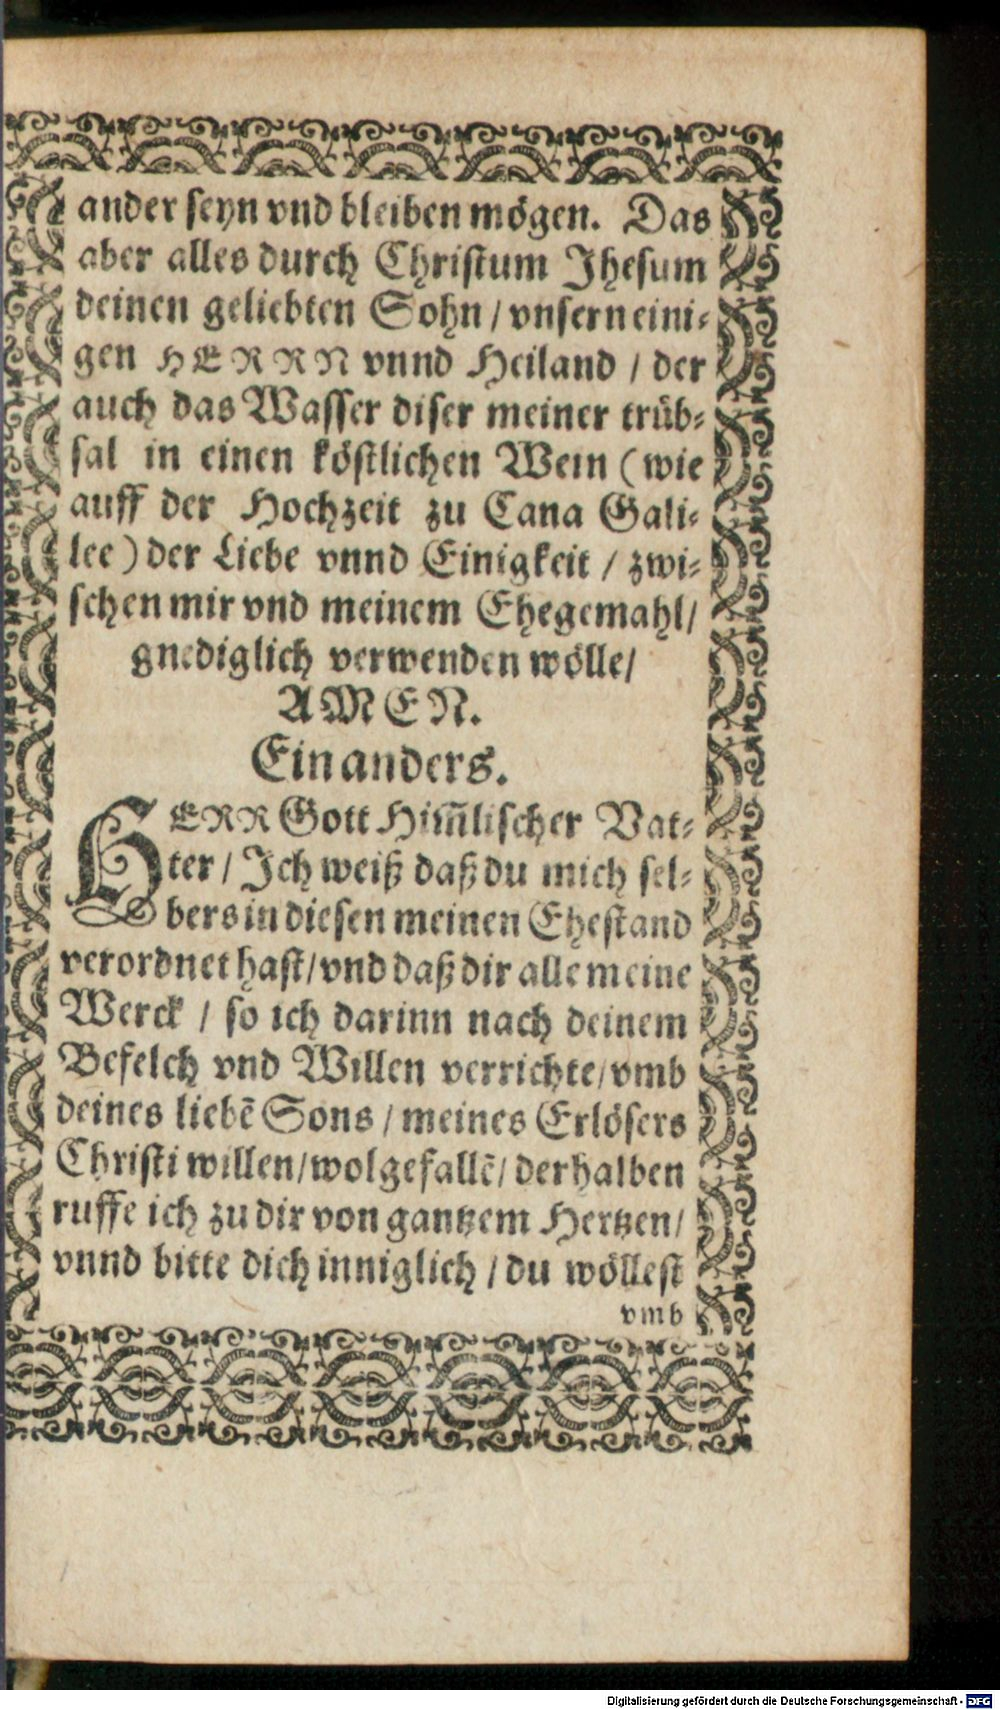 ander seyn vnd bleiben mögen. Das
aber alles durch Christum Jhesum
deinen geliebten Sohn / vnsern eini-
gen HERRN vnnd Heiland / der
auch das Wasser diser meiner trüb-
sal in einen köstlichen Wein (wie
auff der Hochzeit zu Cana Gali-
lee) der Liebe vnnd Einigkeit / zwi-
schen mir vnd meinem Ehegemahl /
gnediglich verwenden wölle /
AMEN.
Ein anders.
HERR Gott Him̃lischer Vat-
ter / Ich weiß daß du mich sel-
bers in diesen meinen Ehestand
verordnet hast / vnd daß dir alle meine
Werck / so ich darinn nach deinem
Befelch vnd Willen verrichte / vmb
deines liebẽ Sons / meines Erlösers
Christi willen / wolgefallẽ / derhalben
ruffe ich zu dir von gantzem Hertzen /
vnnd bitte dich inniglich / du wöllest
vmb
Digitalisierung gefördert durch die Deutsche Forschungsgemeinschaft - DFG